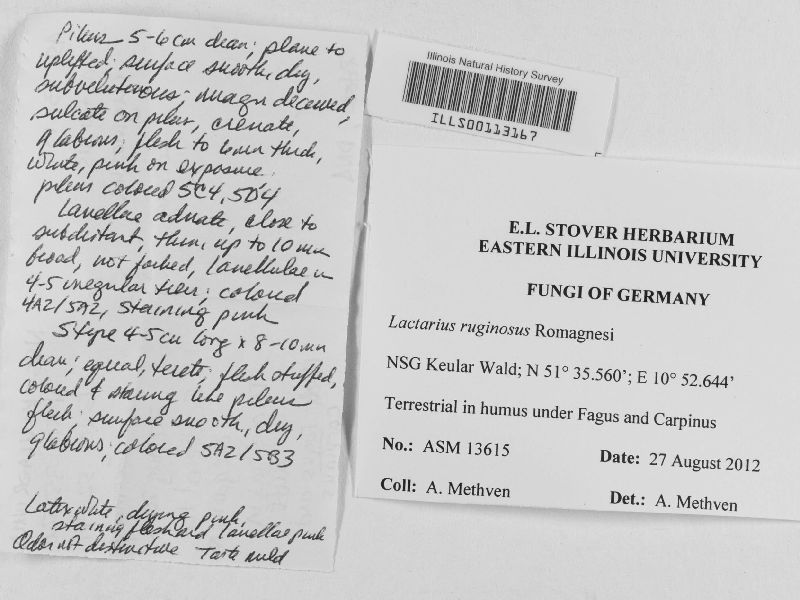 Pileus 5-6 cm diam; plane to
uplifted; surface smooth, dry,
subvelutinous; margin decurved,
sulcate on pileus, crenate,
glabrous; flesh to 6mm thick,
white, pink on exposure.
pileus colored 5C4, 5D4
Lamellae adnate, close to
subdistant, thin, up to 10 mm
broad, not forked, lamellulae in
4-5 irregular tiers; colored
4A2/5A2, staining pink
Stipe 4-5 cm long x 8-10 mm
diam; equal, terete; flesh stuffed,
colored & staining like pileus
flesh; surface smooth, dry,
glabrous; colored 5A2/5B3
Latex white, drying pink,
staining flesh and lamellae pink
Odor not distinctive Taste mild
Illinois Natural History Survey
ILLS00113167
E.L. STOVER HERBARIUM
EASTERN ILLINOIS UNIVERSITY
FUNGI OF GERMANY
Lactarius ruginosus Romagnesi
NSG Keular Wald; N 51° 35.560’; E 10° 52.644’
Terrestrial in humus under Fagus and Carpinus
No.: ASM 13615 Date: 27 August 2012
Coll: A. Methven Det.: A. Methven